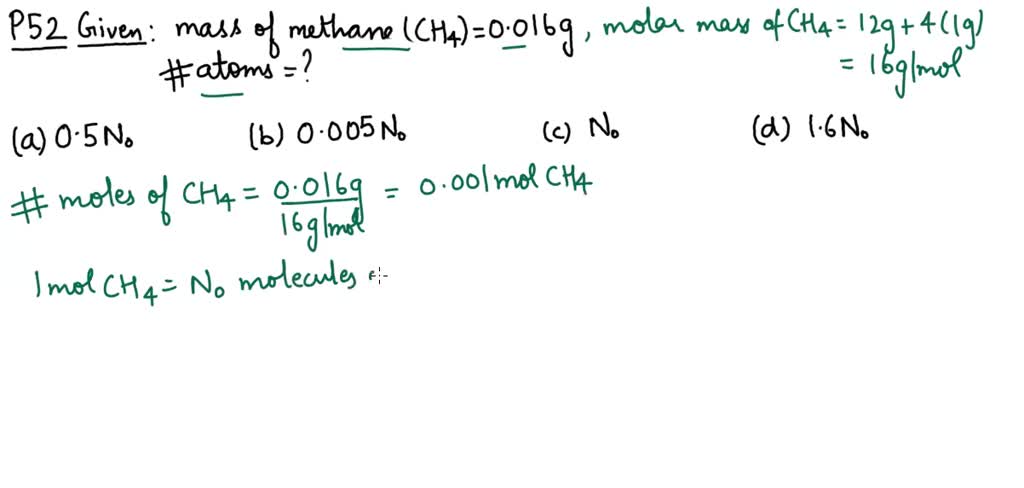 P52 Given: mass of methane (CH4)=0.016g, molar mass of CH4 = 12g+4(1g)
#atoms=? = 16g/mol
(a) 0.5N₀ (b) 0.005N₀ (c) N₀ (d) 1.6N₀
# moles of CH4 = 0.016g/16g/mol = 0.001mol CH4
1mol CH4 = N₀ molecules